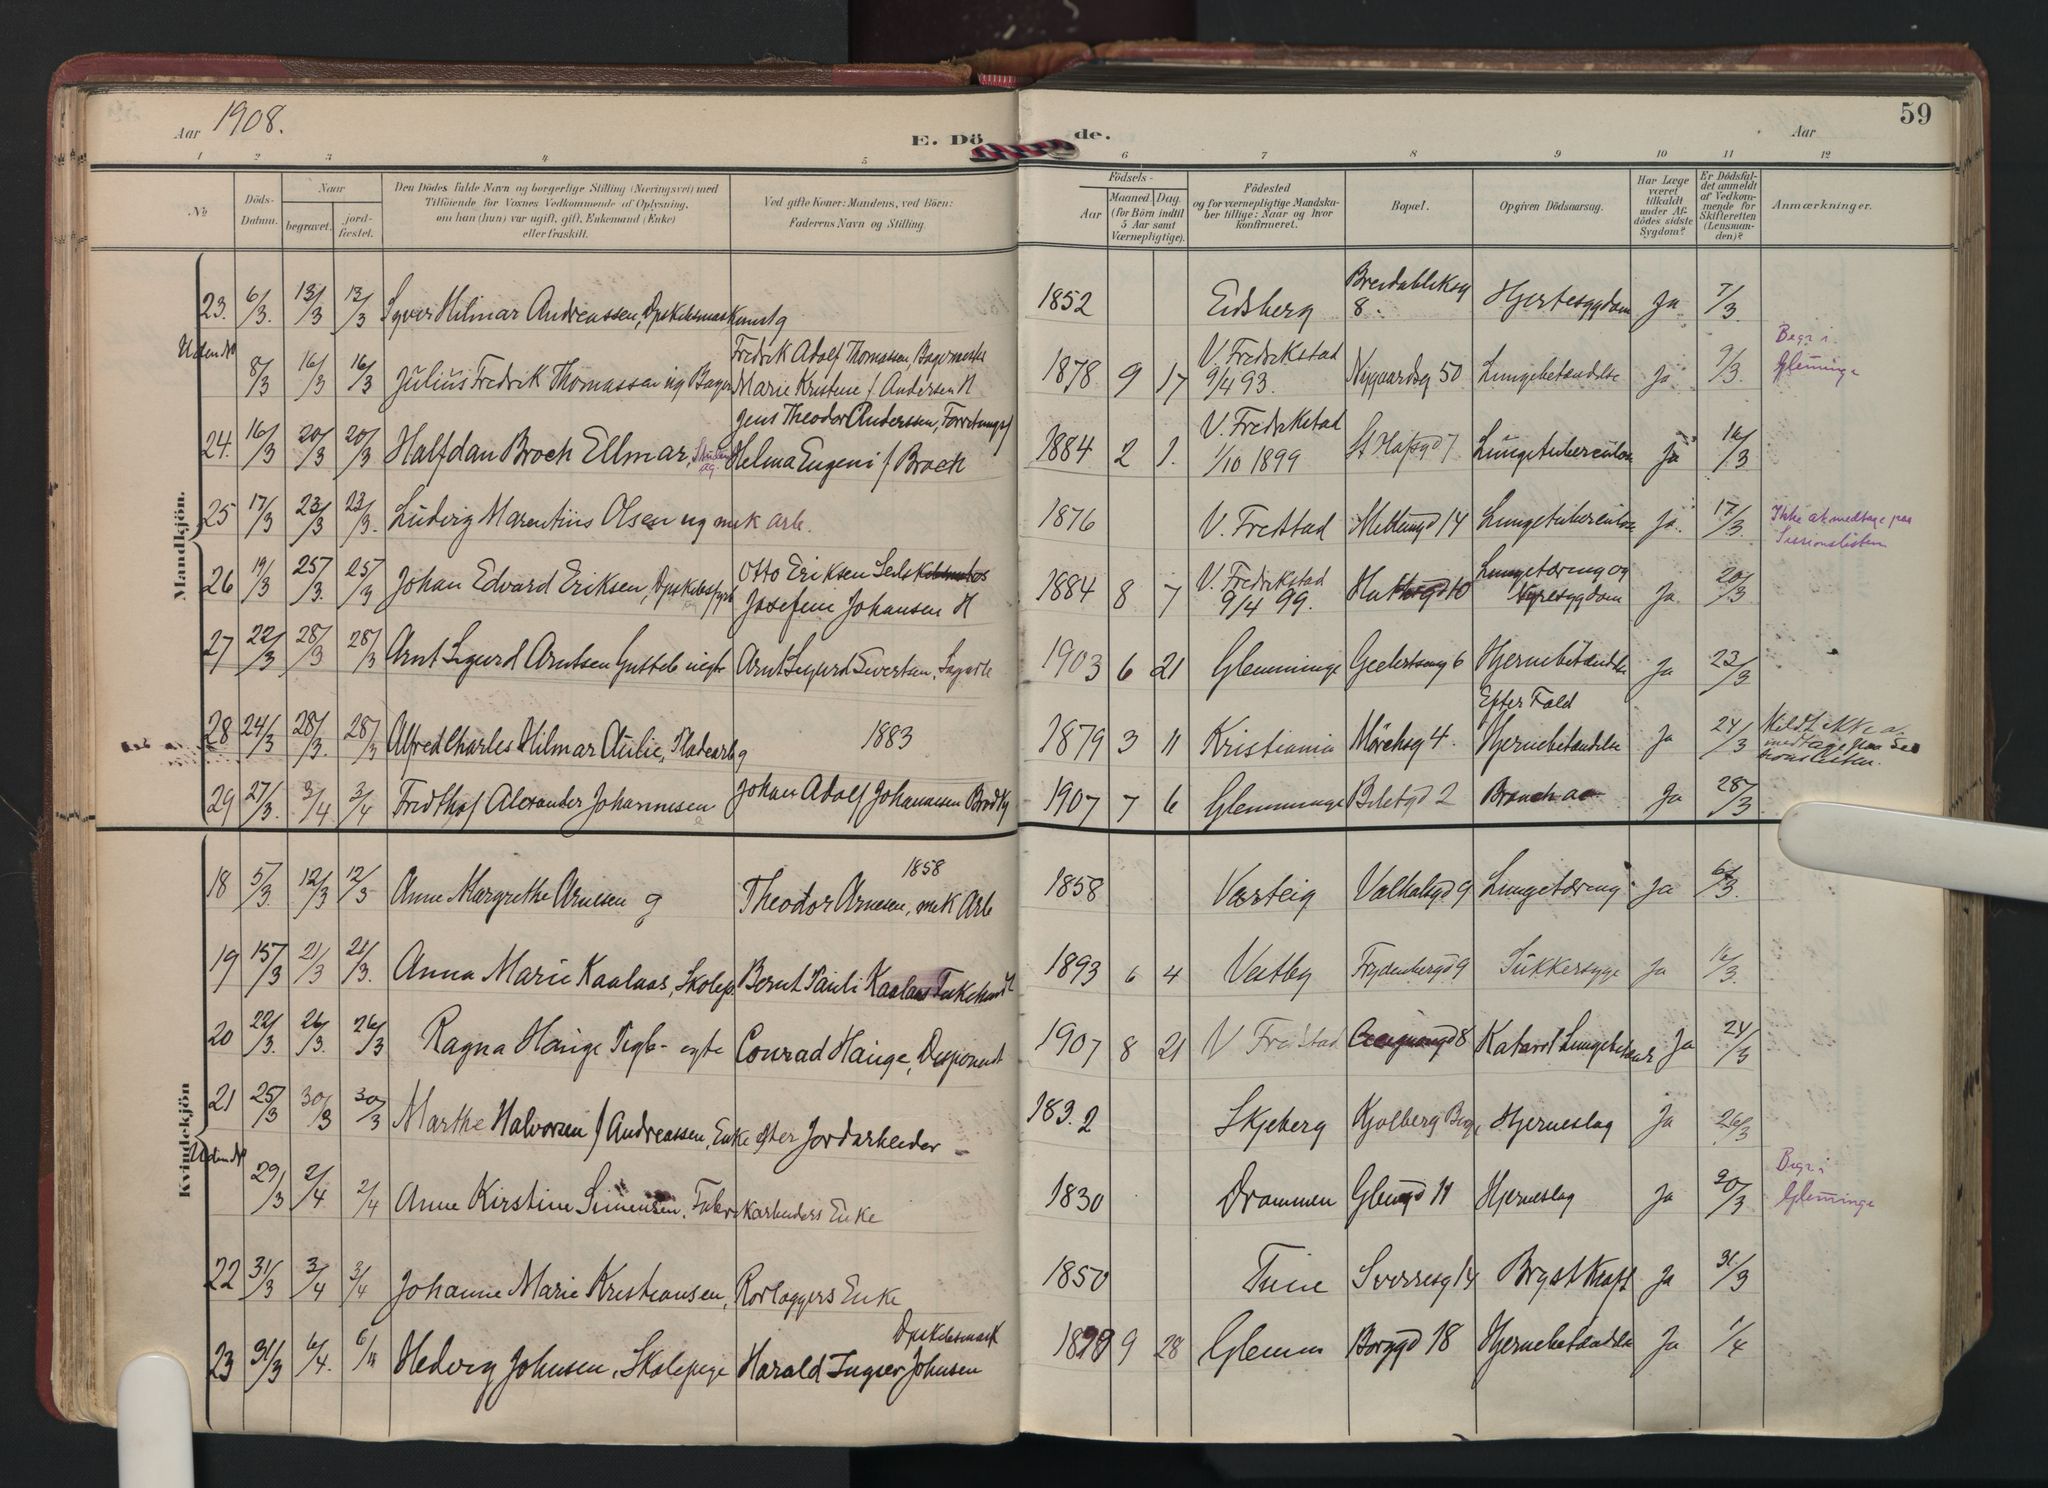 Aar 1908.
E. Dö
de.
Aar
59
1 2 3 4 5 6 7 8 9 10 11 12
No
Döds-Datum.
Naar
begravet.
jord-fæstet.
Den Dödes fulde Navn og borgerlige Stilling (Næringsvei) med
Tilföiende for Voxnes Vedkommende af Oplysning,
om han (hun) var ugift, gift, Enkemand (Enke)
eller fraskilt.
Ved gifte Koner: Mandens, ved Börn:
Faderens Navn og Stilling.
Födsels-
Aar
Maaned. Dag.
(for Börn indtil
5 Aar samt
Værnepligtige).
Födested
og for værnepligtige Mandska-
ber tillige: Naar og hvor
konfirmeret.
Bopæl.
Opgiven Dödsaarsag.
Har Læge
været
tilkaldt
under Af-
dödes sidste
Sygdom?
Er Dödsfal-
det anmeldt
af Vedkom-
mende for
Skifteretten
(Lensman-
den)?
Anmærkninger.
Mandkjön.
23. 6/3. 13/3 13/3 Syver Hilmar Andreassen, 1852 Eidsberg 8. Hjertesygdom Ja 7/3.
Uden No 8/3 16/3 16/3 Julius Fredrik Thomassen ug Bager Fredrik Adolf Thomassen Bagermester
Marie Kristine f Andersen 1878 9 17 V. Fredrikstad
9/4 93. Nygaardsg 50 Lungebetændelse Ja 9/3. Begr i
Glemminge
24. 16/3 20/3 20/3 Halfdan Broch Ellmar, Jens Theodor Anderssen,
Helma Eugeni f Broch 1884 2 1. V. Fredrikstad
1/10 1899 St Olafsgd 7 Lungetuberculose Ja 16/3
25 17/3 23/3 23/3. Ludvig Marentius Olsen ug mek arb. 1876 V. Fredstad 14 Lungetuberculose Ja. 17/3. Ikke at medtage paa
Sessionslisten
26 19/3 25/3. 25/3 Johan Edvard Eriksen, Otto Eriksen
Josefine Johansen 1884 8 7 V. Fredrikstad
9/4 99. Lungetæring og
Nyresygdom Ja 20/3
27 22/3 28/3 28/3 Arnt Sigurd Arntsen Arnt Sigurd Sivertsen, 1903 6 21 Glemminge 6 Hjernebetændelse Ja 23/3
28 24/3 28/3. 28/3 Alfred Charles Hilmar Aulie, Pladearb g 1883 1879 3 11 Kristiania 4. Efter Fald
Hjernebetændelse Ja 24/3 Meldt ikke at
medtage paa Ses
sionslisten.
29 27/3. 3/4 3/4 Fridthjof Alexander Johannesen Johan Adolf Johannesen 1907 7 6 Glemminge 2 Ja 28/3
Kvindekjön
18 5/3. 12/3 12/3 Anne Margrethe Arnesen g 1858
Theodor Arnesen, mek Arb 1858 Varteig Valhalsgd 9 Lungetæring Ja 6/3.
19 15/3 21/3 21/3. Anna Marie Kaalaas, Skolep. Bernt Pauli Kaalaas 1893 6 4 Vestby Frydenbergd 9 Sukkersyge Ja 16/3
20 22/3. 26/3. 26/3 Ragna Hauge Pigeb- egte Conrad Hauge, Disponent 1907 8 21 V Fredstad 8 Katarrh Lungebetænd Ja 24/3
21 25/3 30/3 30/3 Marthe Halvorsen f Andreassen, Enke efter Jordarbeider 1832 Skjeberg Kjølberg Brug, Hjerneslag Ja 26/3
Uden No 29/3 2/4 2/4 Anne Kirstine Simensen, Fabrikarbeiders Enke 1830 Drammen Glemgd 11 Hjerneslag Ja 30/3 Begr i
Glemminge
22 31/3 3/4 3/4 Johanne Marie Kristiansen, Rorlæggers Enke 1850 Tune Sverresg 14 Brystkræft Ja 31/3
23 31/3 6/4. Hedvig Johnsen, Skolepige Harald Ingvar Johnsen 9 28 Glemm Borggd 18 Hjernebetændelse Ja 1/4